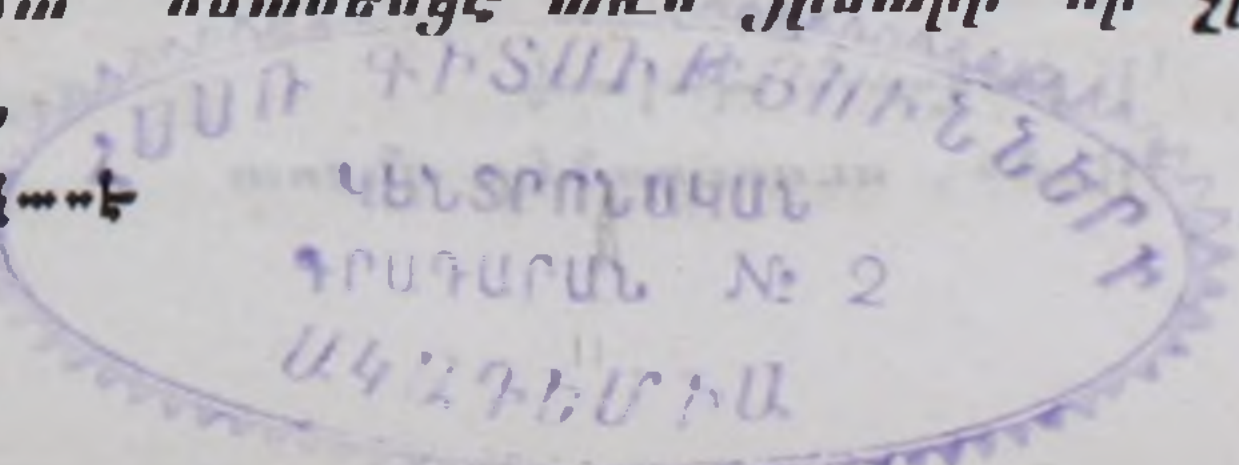 ՀՍՍՌ ԳԻՏՈՒԹՅՈՒՆՆԵՐԻ
ԿԵՆՏՐՈՆԱԿԱՆ
ԳՐԱԴԱՐԱՆ № 2
ԱԿԱԴԵՄԻԱ